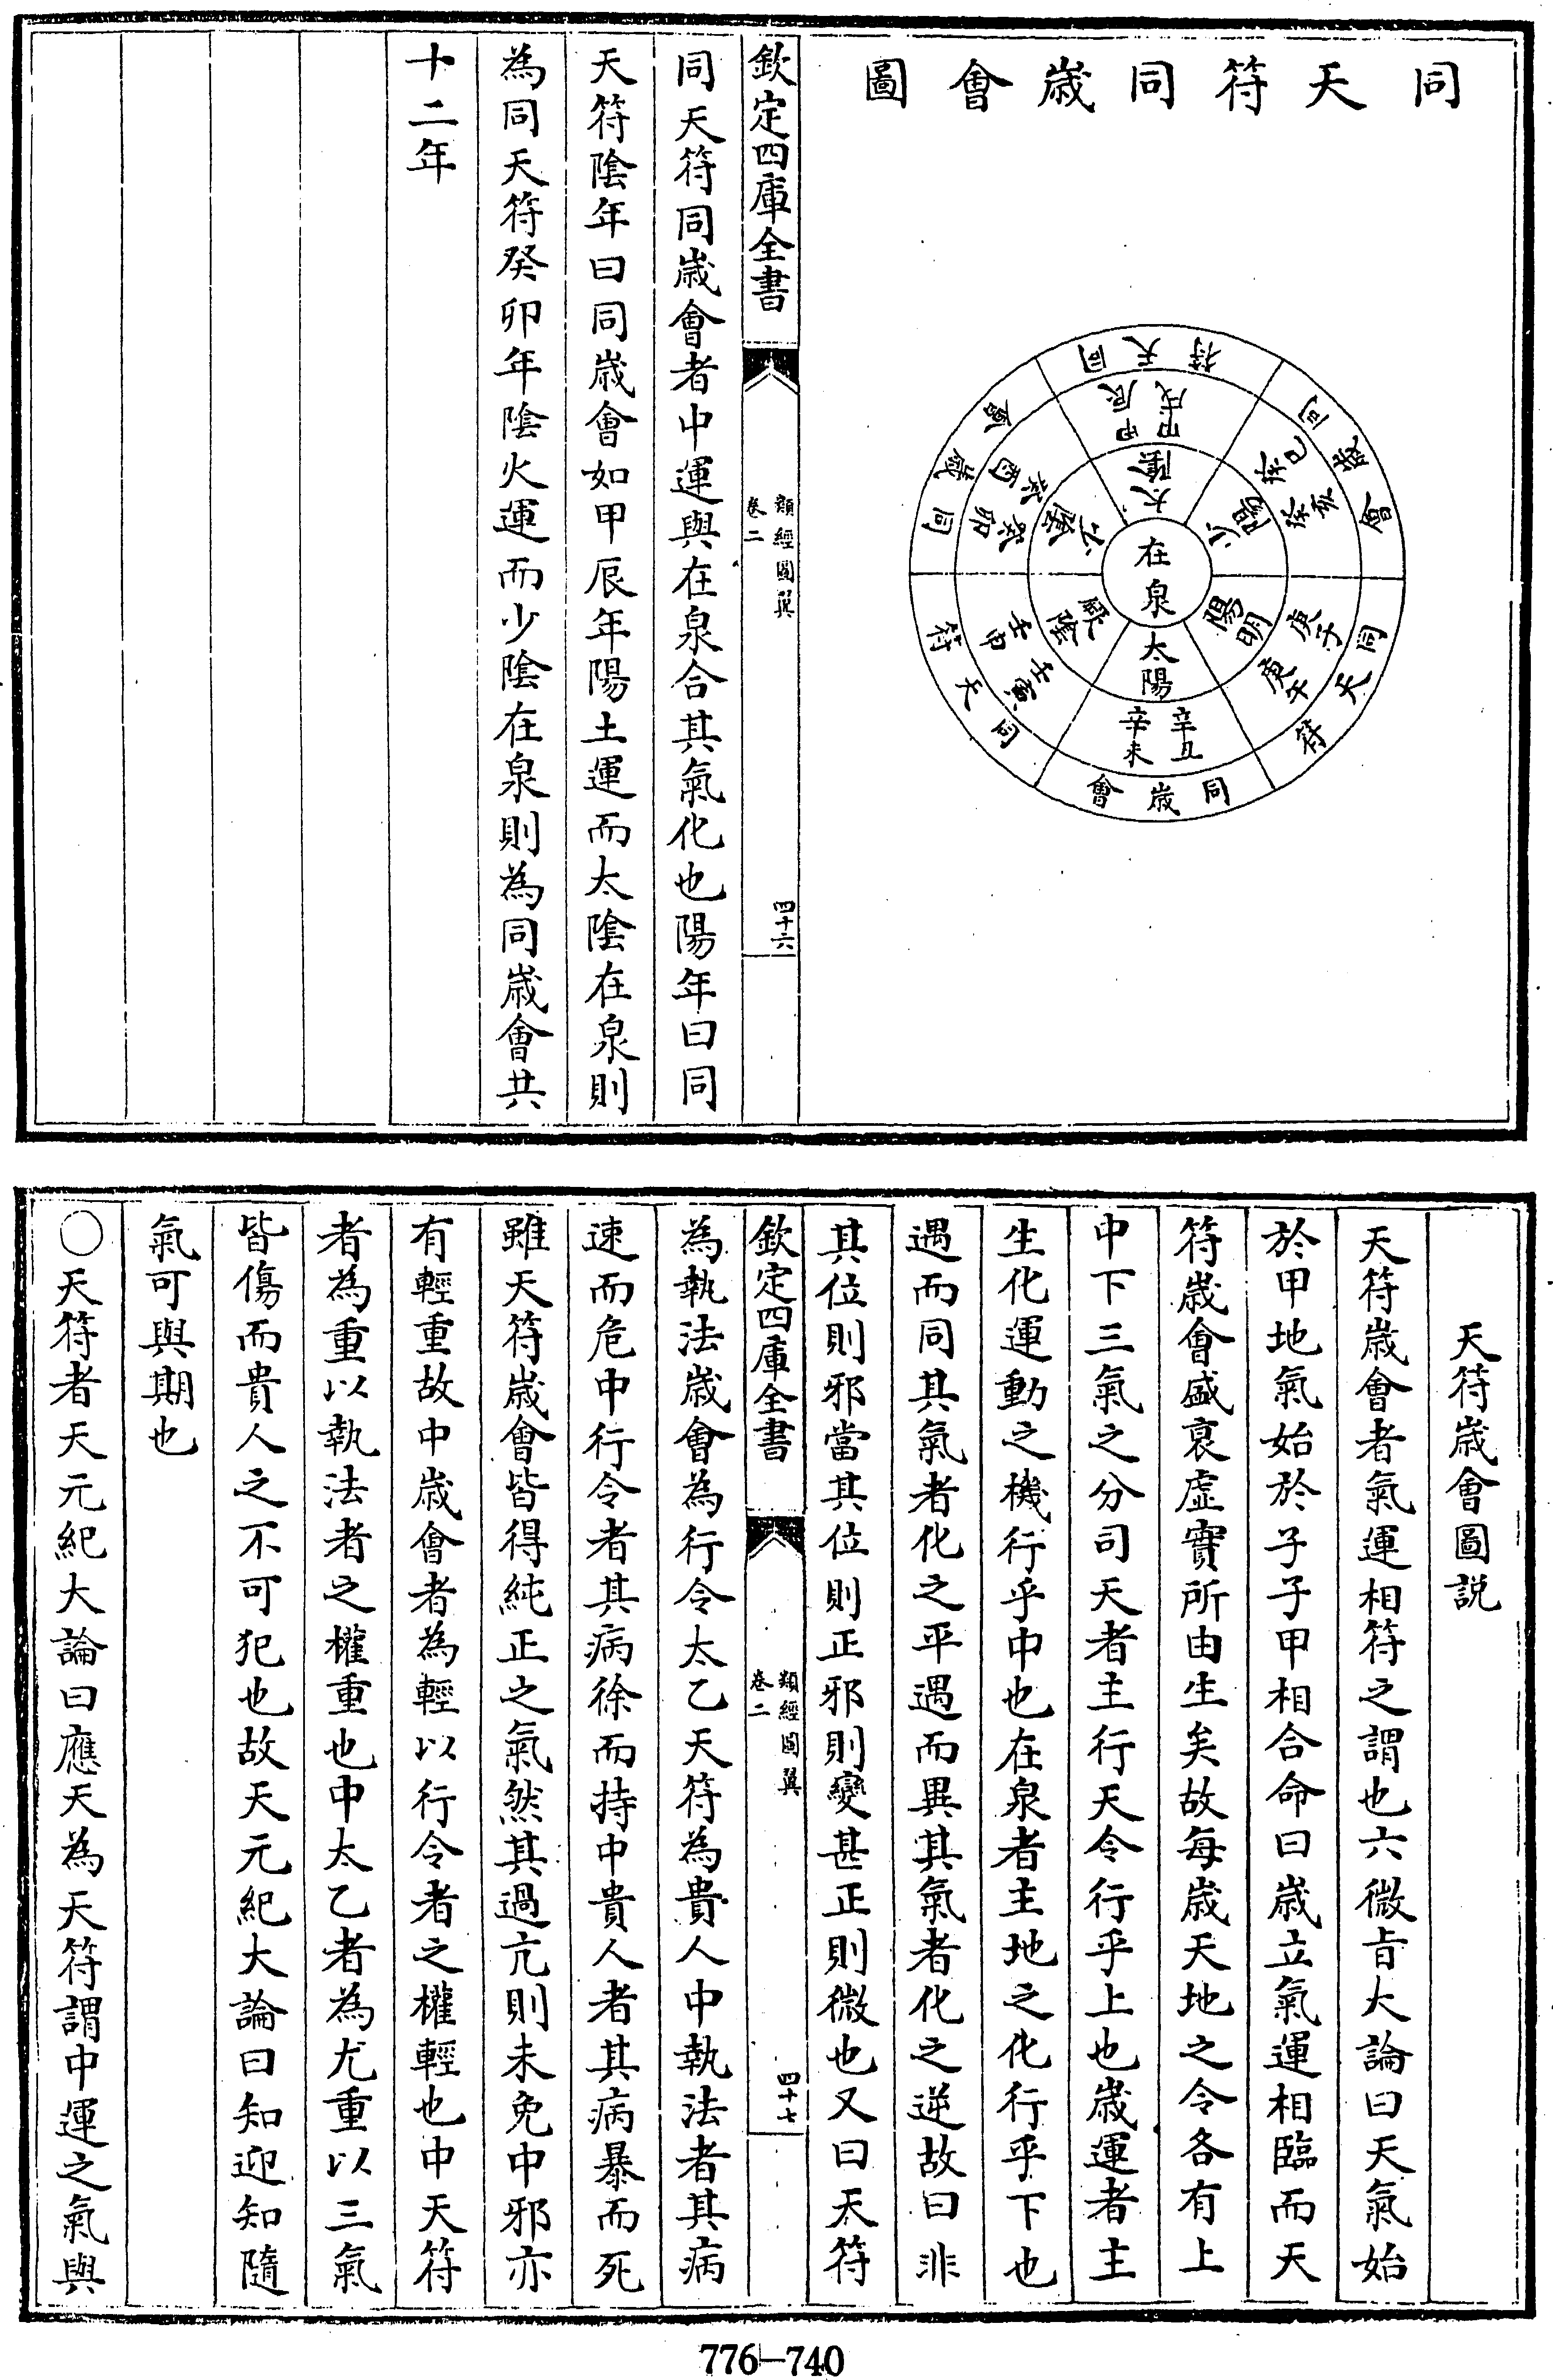 同天符同歲會圖
在泉
太陰
甲辰
甲戌
同天符
少陽
癸巳
癸亥
同歲會
陽明
庚子
庚午
同天符
太陽
辛丑
辛未
同歲會
厥陰
壬寅
壬申
同天符
少陰
癸卯
癸酉
同歲會
欽定四庫全書
類經圖翼
卷二
四十六
同天符同歲會者中運與在泉合其氣化也陽年曰同
天符陰年曰同歲會如甲辰年陽土運而太陰在泉則
為同天符癸卯年陰火運而少陰在泉則為同歲會共
十二年
天符歲會圖説
天符歲會者氣運相符之謂也六微旨大論曰天氣始
於甲地氣始於子子甲相合命曰歲立氣運相臨而天
符歲會盛衰虛實所由生矣故每歲天地之令各有上
中下三氣之分司天者主行天令行乎上也歲運者主
生化運動之機行乎中也在泉者主地之化行乎下也
遇而同其氣者化之平遇而異其氣者化之逆故曰非
其位則邪當其位則正邪則變甚正則微也又曰天符
欽定四庫全書
類經圖翼
卷二
四十七
為執法歲會為行令太乙天符為貴人中執法者其病
速而危中行令者其病徐而持中貴人者其病暴而死
雖天符歲會皆得純正之氣然其過亢則未免中邪亦
有輕重故中歲會者為輕以行令者之權輕也中天符
者為重以執法者之權重也中太乙者為尤重以三氣
皆傷而貴人之不可犯也故天元紀大論曰知迎知隨
氣可與期也
○天符者天元紀大論曰應天為天符謂中運之氣與
776-740